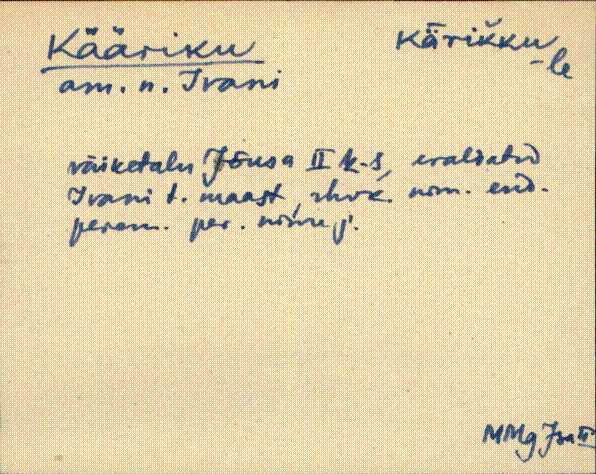 Kääriku
Kärikku
-le
am. n. Ivani
väiketalu Jõusa II k-s, eraldatud
Ivani t. maast, rhvk. nim. end.
perem. per. nime j.
MMg Jsa II